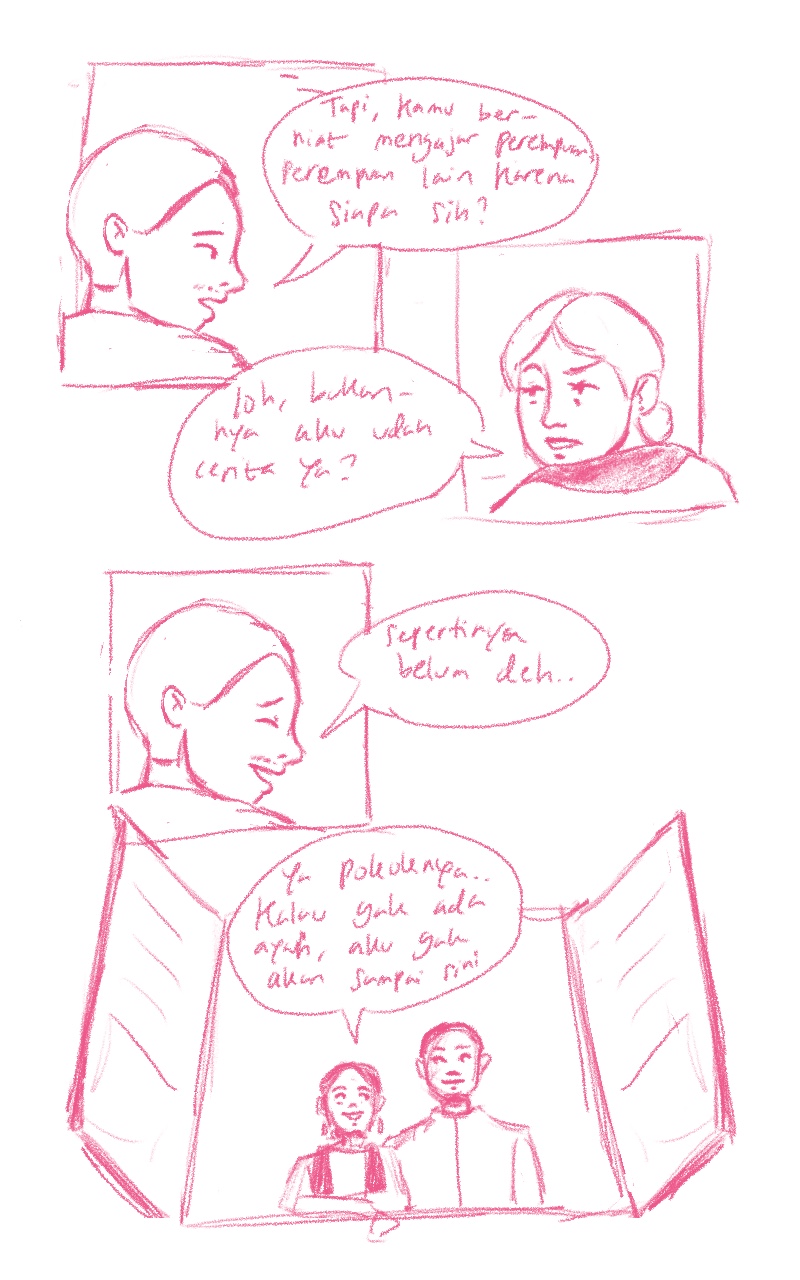 Tapi, kamu ber-
niat mengajar perempuan,
perempuan lain karena
siapa sih?
loh, bukan-
nya aku udah
cerita ya?
sepertinya
belum deh..
Ya pokoknya..
Kalau gak ada
ayah, aku gak
akan sampai sini